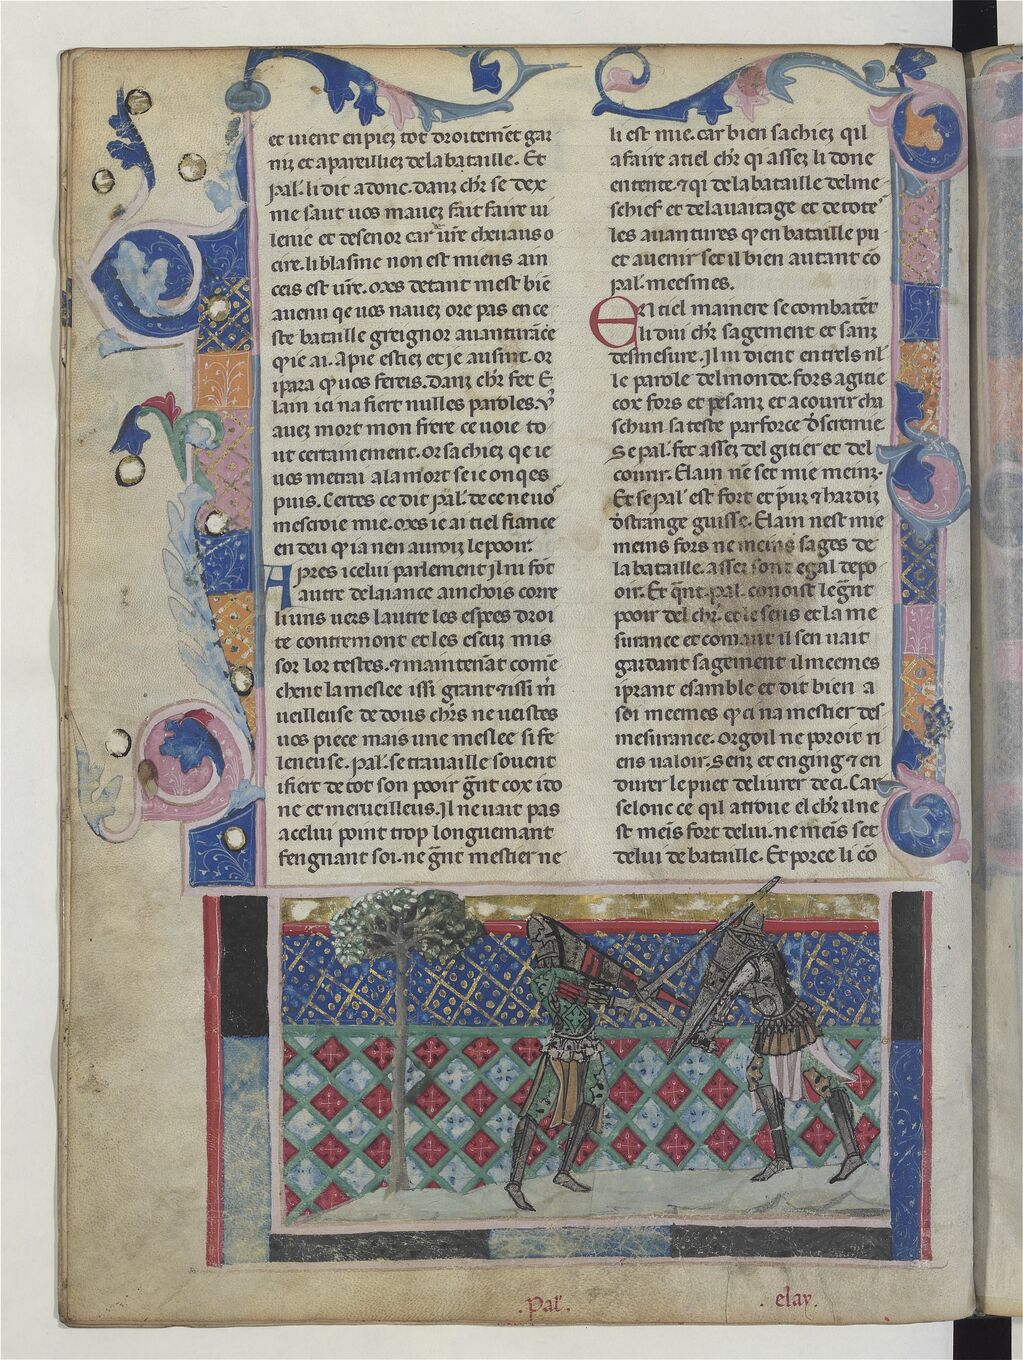 et uient en piez tot droitemēt gar
niz et apareilliez de la bataille. Et
pal'. li dit adonc. danz chr̄ se dex
me saut uos mauez fait faire ui
lenie et desenor car ur̄e cheuaus o
cire. li blasme non est miens ain
ceis est ur̄e. oxes de tant mest biē
auenu qe uos nauez ore pas en ce
ste bataille greignor auanturāce
qe ie ai. a pie estiez et ie ausint. or
i para qe uos fereis. danz chr̄ fet E
lain ici na fiert nulles paroles. v̄
auez mort mon frere ce uoie to
ut certainement. or sachiez qe ie
uos metrai a la mort se ie onqes
puis. Certes ce dit pal'. de ce ne uos
mescroie mie. oxes ie ai tiel fiance
en deu qe ia nen auroiz le pooir.
Apres icelui parlement il ni fot
autre delaiance ainchois corre
li uns uers lautre les espees droi
te contremont et les escuz mis
sor lor testes. et maintenāt comē
chent la meslee issi grant et issi m̄
ueilleuse de dous chr̄s ne ueistes
uos piece mais une meslee si fe
leneuse. pal'. se trauaille souent
i fiert de tot son pooir ḡnt cox ido
ne et merueilleus. Il ne uait pas
a celui point trop longuemant
fengnant soi. ne ḡnt mestier ne
li est mie. car bien sachiez qil
a faire a tiel chr̄ qi assez li done
entente. et qi de la bataille del me
schief et de lauaitage et de tote
les auantures qe en bataille pu
et auenir set il bien autant cō
pal. meesmes.
En tiel mainere se combatēt
li dui chr̄ sagement et sanz
desmesure. Il ni dient entrels nl'
le parole del monde. fors a gitie
cox fors et pesanz et a courir cha
schun sa teste par force d'scremie
Se pal'. fet assez del gitier et del
courir. Elain nē set mie meinz.
Et se pal' est fort et pruz et hardiz
d'strange guisse. Elain nest mie
meins fors ne meins sages de
la bataille. assez sont egal de po
oir. Et qānt. pal. conoist le ḡnt
pooir del chr̄. et le sens et la me
surance et comant il sen uait
gardant sagement il meemes
i prant esamble et dit bien a
soi meemes qe ci na mestier des
mesurance. Orgoil ne poroit ri
ens ualoir. Senz et enging et en
durer le puet deliurer de ci. Car
selonc ce qil a troue el chr̄ il ne
st meīs fort de lui. ne meīs set
de lui de bataille. Et por ce li cō
.pal'.
.elay.